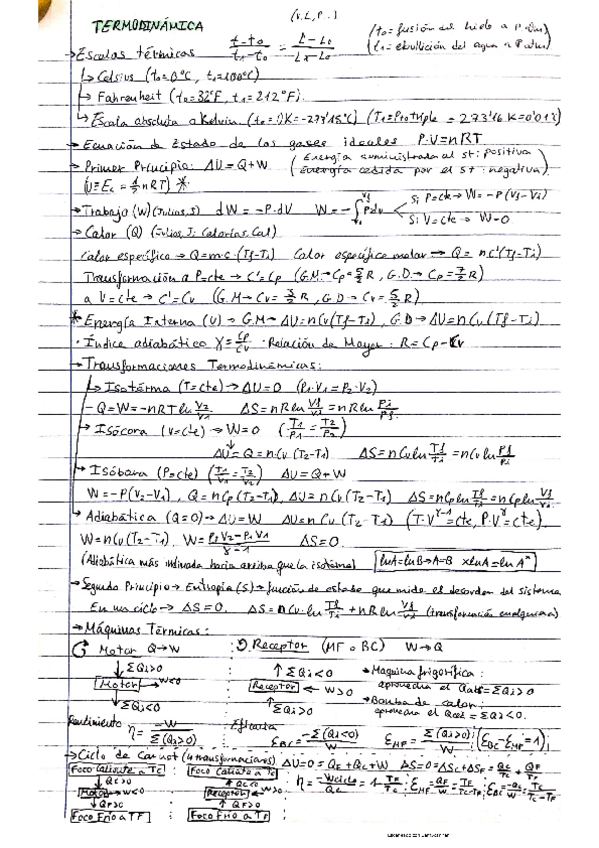 TERMODINÁMICA (V, L, P..)
(t₀ = fusión del hielo a P atm)
(t₁ = ebullición del agua a P atm)
→ Escalas térmicas (t-t₀)/(t₁-t₀) = (L-L₀)/(L₁-L₀)
↳ Celsius (t₀=0°C, t₁=100°C)
↳ Fahrenheit (t₀=32°F, t₁=212°F).
↳ Escala absoluta o Kelvin (t₀=0K=-273'15°C) (T₁=Pto triple = 273'16 K=0'01°C)
→ Ecuación de Estado de los gases ideales P·V=nRT
→ Primer Principio: ΔU=Q+W (Energía suministrada al st: positiva
Energía cedida por el st: negativa)
→ Trabajo (W) (Julios, J) dW=-P·dV W=-∫P·dV Si P=cte → W=-P(Vf-Vi)
Si V=cte → W=0
→ Calor (Q) (Julios J; Calorías, Cal)
Calor específico → Q=m·c·(Tf-Ti) Calor específico molar → Q= nC'(Tf-Ti)
Transformación a P=cte → C'=Cp (G.M → Cp=5/2 R, G.D → Cp=7/2 R)
a V=cte → C'=Cv (G.M → Cv=3/2 R, G.D → Cv=5/2 R)
* Energía Interna (U) → G.M → ΔU=nCv(Tf-Ti), G.D → ΔU=nCv(Tf-Ti)
· Índice adiabático γ=Cp/Cv · Relación de Mayer: R=Cp-Cv
→ Transformaciones Termodinámicas:
↳ Isoterma (T=cte) → ΔU=0 (P₁·V₁=P₂·V₂)
-Q=W=-nRT ln V₂/V₁ ΔS=nR ln Vf/Vi = nR ln Pi/Pf
→ Isócora (V=cte) → W=0 (T₁/P₁=T₂/P₂)
ΔU=Q=n·Cv(T₂-T₁) ΔS=nCv ln Tf/Ti = nCv ln Pf/Pi
→ Isóbara (P=cte) (T₁/V₁=T₂/V₂) ΔU=Q+W
W=-P(V₂-V₁), Q=nCp(T₂-T₁), ΔU=nCv(T₂-T₁) ΔS=nCp ln Tf/Ti = nCp ln Vf/Vi
↳ Adiabática (Q=0) → ΔU=W ΔU=nCv(T₂-T₁) (T·V^γ-1=cte, P·V^γ=cte)
W=nCv(T₂-T₁), W=(P₂V₂-P₁V₁)/(γ-1) ΔS=0
(Adiabática más inclinada hacia arriba que la isoterma) lnA=lnB → A=B xlnA=lnAˣ
→ Segundo Principio → Entropía (S) → función de estado que mide el desorden del sistema
En un ciclo → ΔS=0. ΔS=nCv·ln Tf/Ti + nR ln Vf/Vi (transformación cualquiera)
→ Máquinas Térmicas:
Motor Q→W Receptor (MF o BC) W→Q
↓ΣQi>0 ↑ΣQi<0 → Maquina frigorífica:
Motor → W<0 Receptor ← W>0 aprovecha el Qabs=ΣQi>0
↓ΣQi<0 ↑ΣQi>0 → Bomba de calor:
aprovecha el Qced=ΣQi<0.
Rendimiento η=-W/Σ(Qi>0) Eficacia ε_BC=-Σ(Qi<0)/W ε_MF=Σ(Qi>0)/W (ε_BC-ε_MF=1)
→ Ciclo de Carnot (4 transformaciones) ΔU=0=QF+QC+W ΔS=0=ΔSC+ΔSF=QC/TC+QF/TF
Foco Caliente a TC Foco Caliente a TC
↓QC>0 ↑QC<0 η=-Wciclo/QC=1-TF/TC; ε_MF=QF/W=TF/(TC-TF); ε_BC=-QC/W=TC/(TC-TF)
Motor → W<0 Receptor ← W>0
↓QF<0 ↑QF>0
Foco Frío a TF Foco Frío a TF